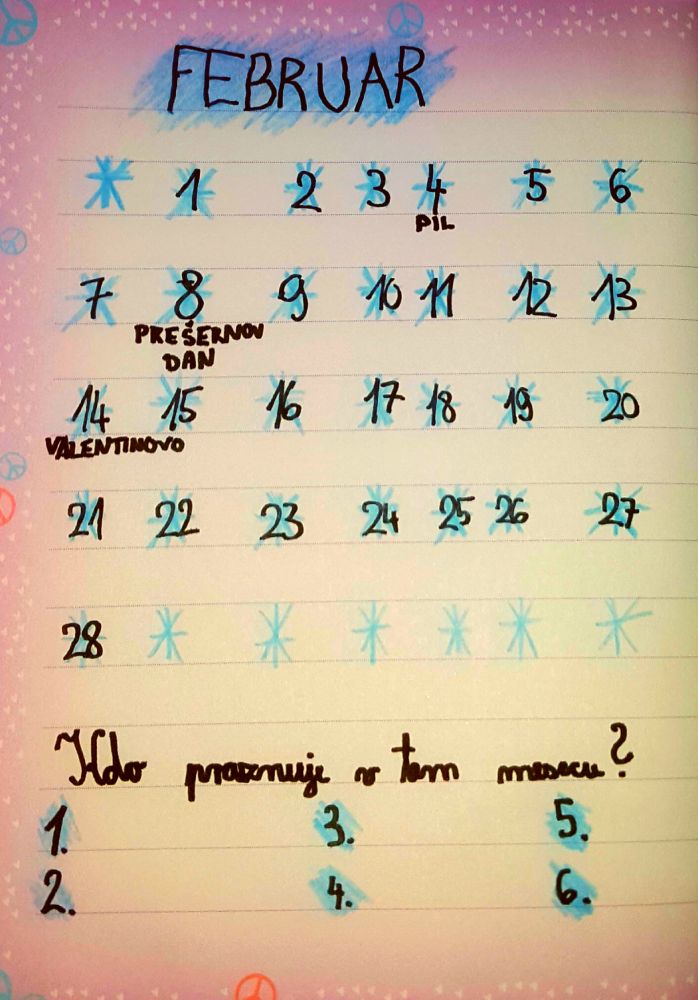 FEBRUAR
1 2 3 4 5 6
PIL
7 8 9 10 11 12 13
PREŠERNOV
DAN
14 15 16 17 18 19 20
VALENTINOVO
21 22 23 24 25 26 27
28
Kdo praznuje v tem mesecu?
1. 3. 5.
2. 4. 6.